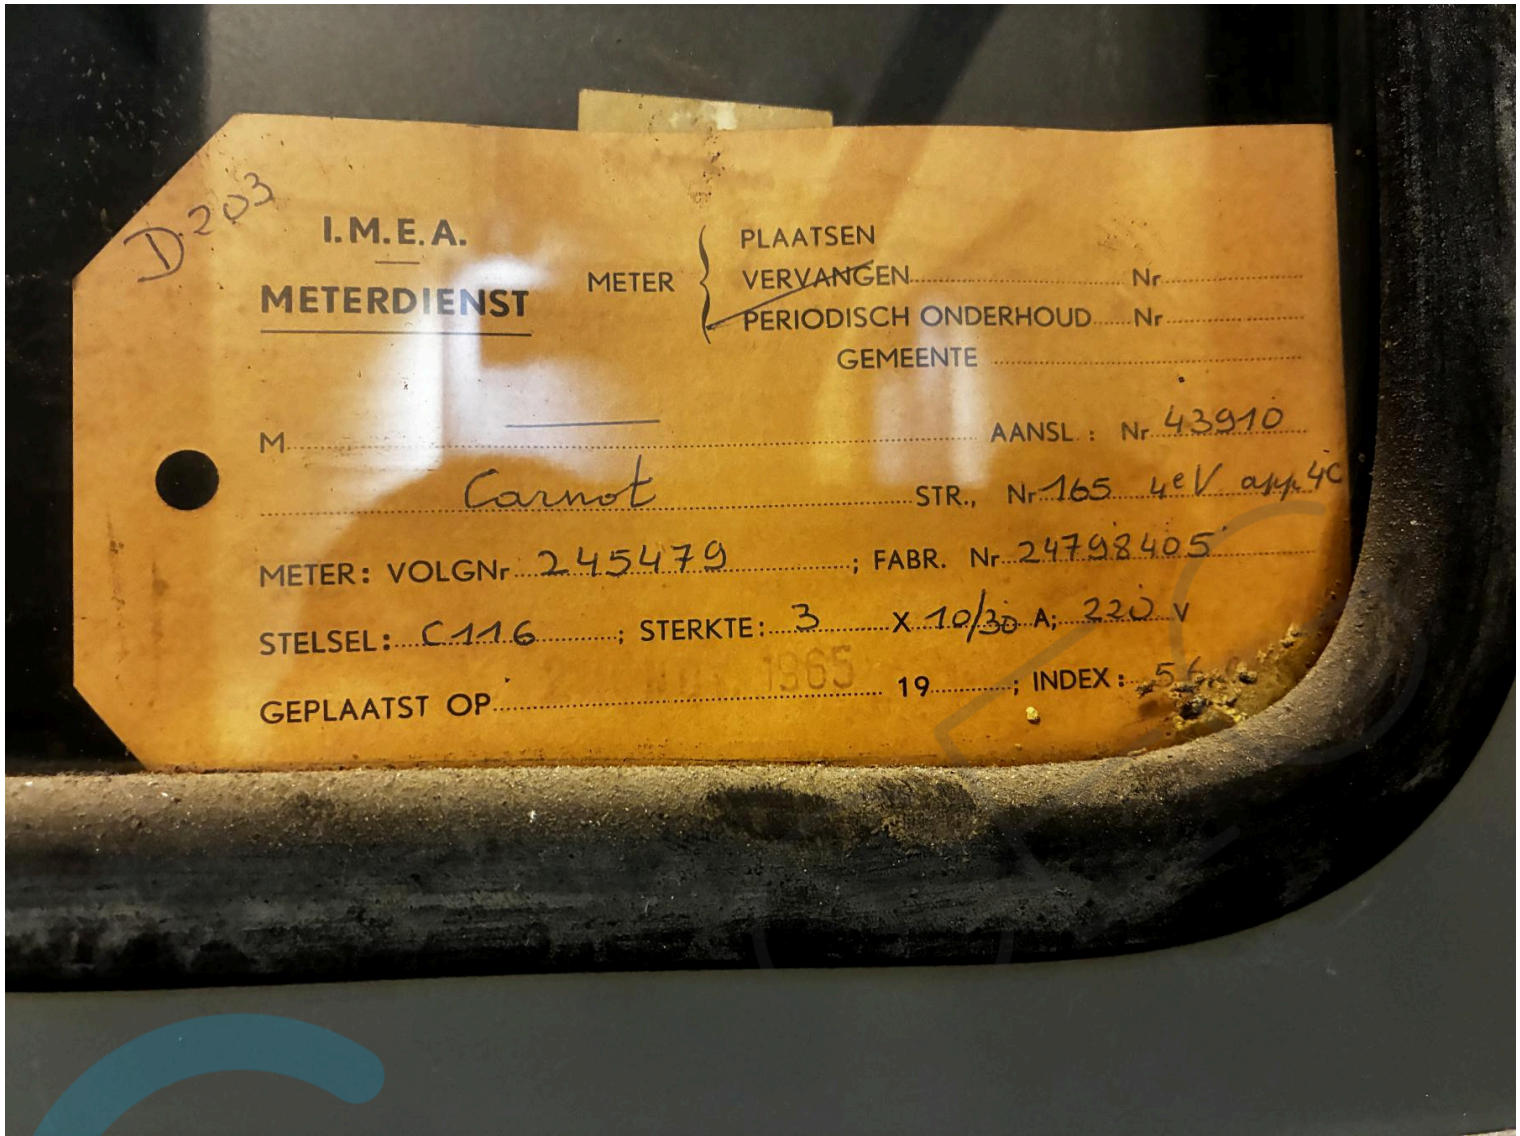 D.203
I.M.E.A.
METERDIENST
METER { PLAATSEN
VERVANGEN Nr
PERIODISCH ONDERHOUD Nr
GEMEENTE
M AANSL : Nr 43910
Carnot STR., Nr 165 4eV app. 4C
METER: VOLGNr 245479 ; FABR. Nr 24798405
STELSEL: C116 ; STERKTE: 3 X 10/30 A; 220 V
GEPLAATST OP 1965 19 ; INDEX: